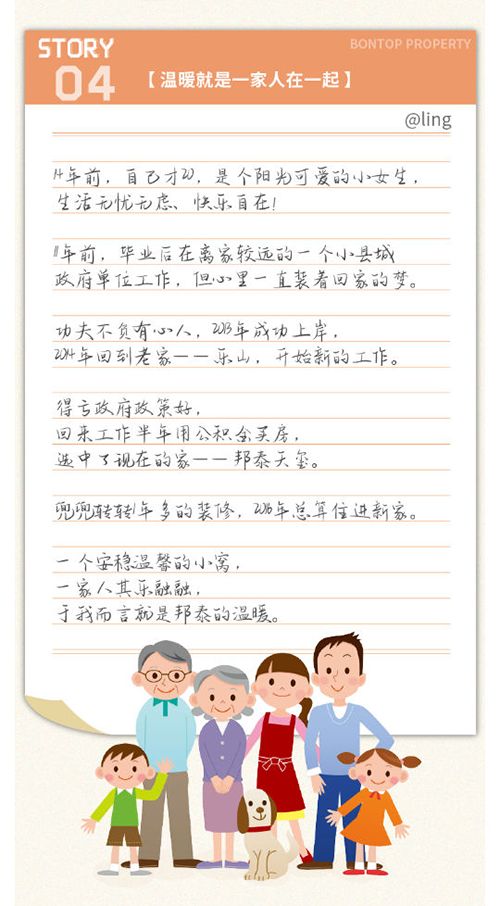 STORY
04
BONTOP PROPERTY
【 温暖就是一家人在一起 】
@ling
14年前，自己才20，是个阳光可爱的小女生，
生活无忧无虑、快乐自在！
11年前，毕业后在离家较远的一个小县城
政府单位工作，但心里一直装着回家的梦。
功夫不负有心人，2013年成功上岸，
2014年回到老家——乐山，开始新的工作。
得亏政府政策好，
回来工作半年用公积金买房，
选中了现在的家——邦泰天玺。
兜兜转转1年多的装修，2016年总算住进新家。
一个安稳温馨的小窝，
一家人其乐融融，
于我而言就是邦泰的温暖。